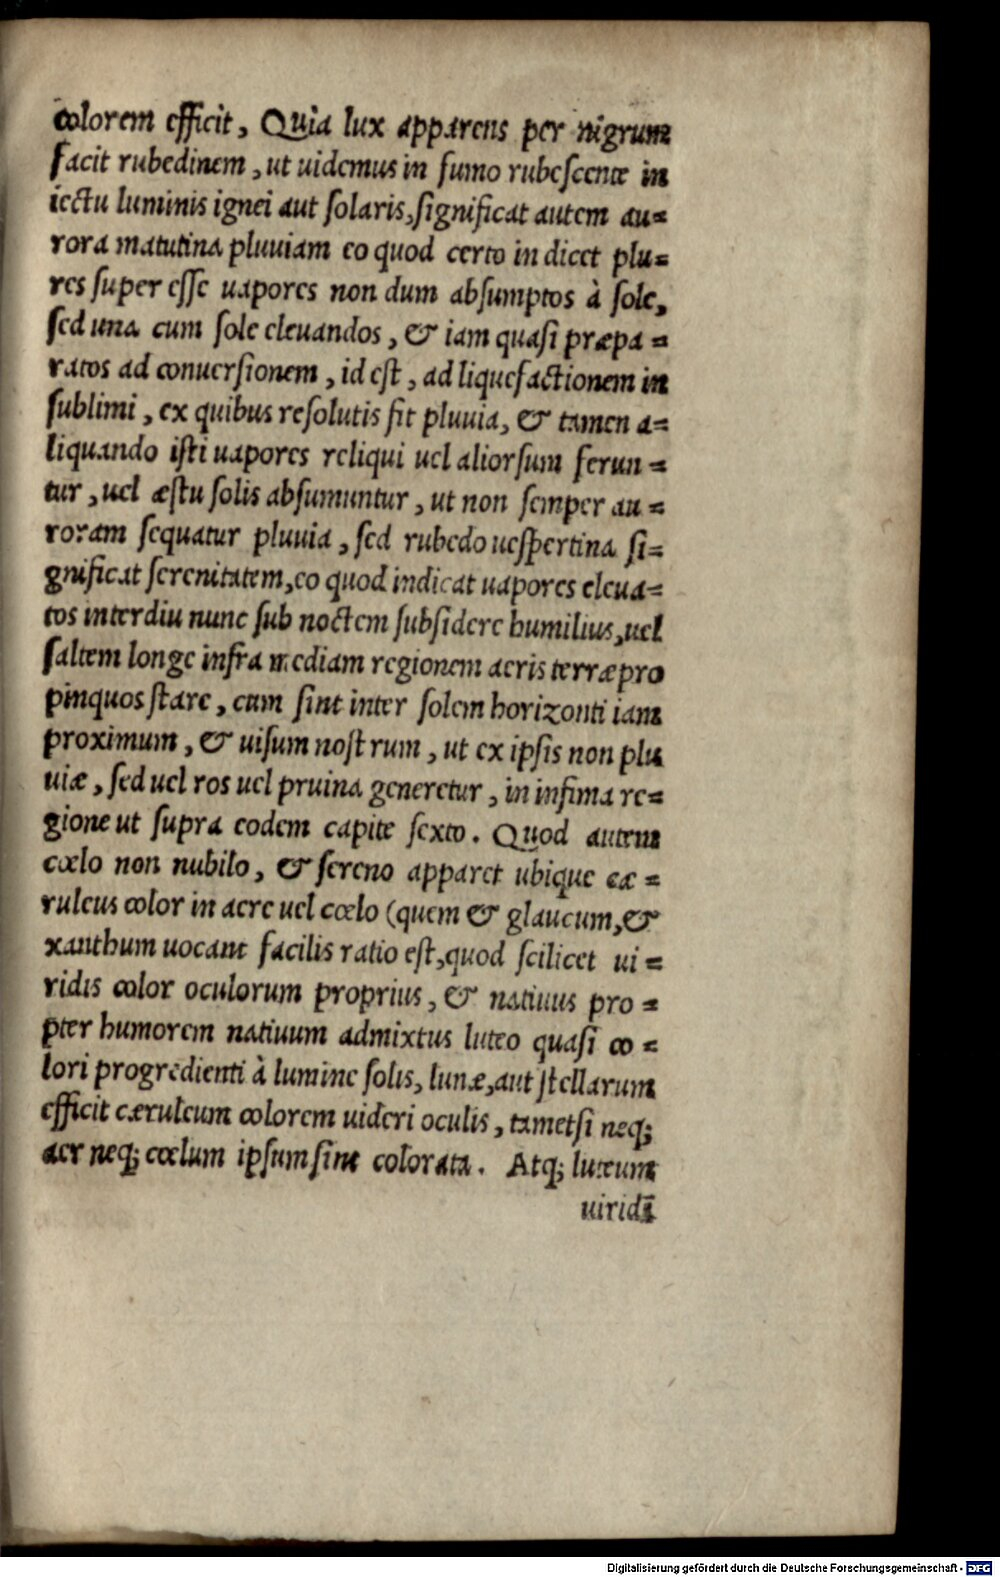 colorem efficit, Quia lux apparens per nigrum
facit rubedinem, ut uidemus in fumo rubescente in
iectu luminis ignei aut solaris, significat autem au=
rora matutina pluuiam eo quod certo in dicet plu=
res super esse uapores non dum absumptos à sole,
sed una cum sole eleuandos, & iam quasi præpa =
ratos ad conuersionem, id est, ad liquefactionem in
sublimi, ex quibus resolutis fit pluuia, & tamen a=
liquando isti uapores reliqui uel aliorsum ferun =
tur, uel æstu solis absumuntur, ut non semper au =
roram sequatur pluuia, sed rubedo uespertina si=
gnificat serenitatem, eo quod indicat uapores eleua=
tos interdiu nunc sub noctem subsidere humilius, uel
saltem longe infra mediam regionem aeris terræ pro
pinquos stare, cum sint inter solem horizonti iam
proximum, & uisum nostrum, ut ex ipsis non plu
uiæ, sed uel ros uel pruina generetur, in infima re=
gione ut supra eodem capite sexto. Quod autem
cœlo non nubilo, & sereno apparet ubique cæ =
ruleus color in aere uel cœlo (quem & glaucum, &
xanthum uocant facilis ratio est, quod scilicet ui =
ridis color oculorum proprius, & natiuus pro =
pter humorem natiuum admixtus luteo quasi co =
lori progredienti à lumine solis, lunæ, aut stellarum
efficit cæruleum colorem uideri oculis, tametsi neq;
aer neq; cœlum ipsum sint colorata. Atq; luteum
uiridi
Digitalisierung gefördert durch die Deutsche Forschungsgemeinschaft - DFG